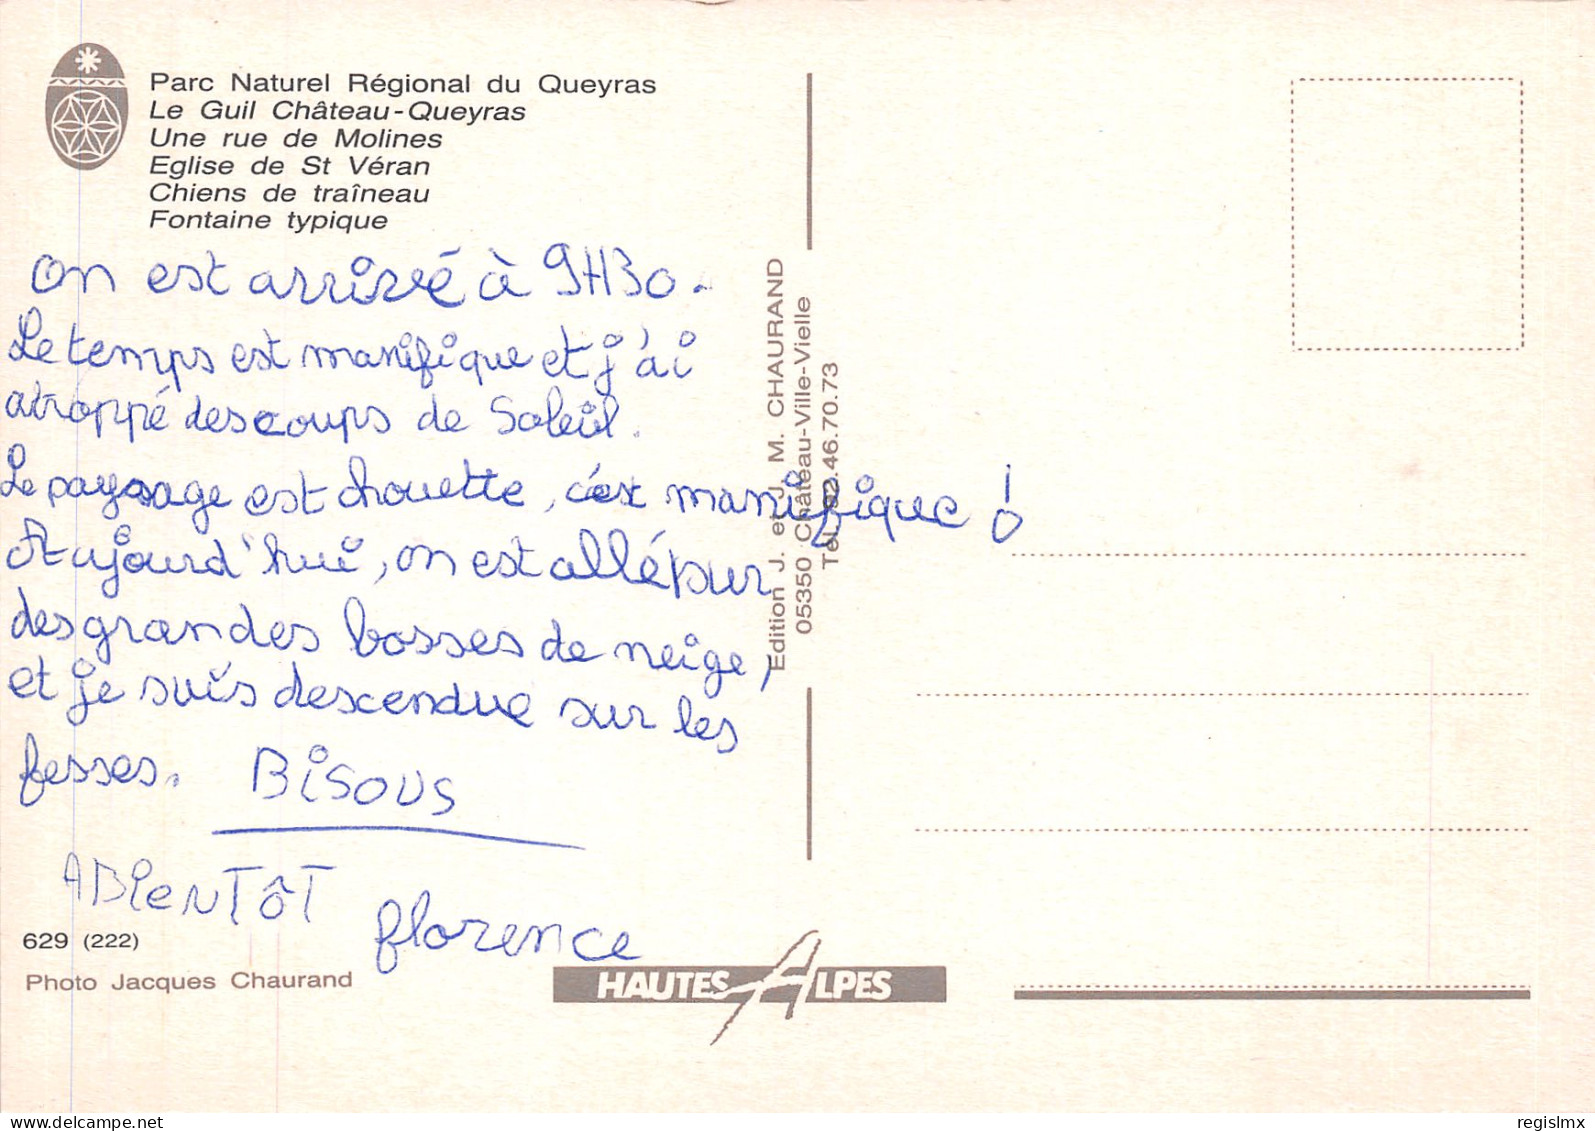 Parc Naturel Régional du Queyras
Le Guil Château-Queyras
Une rue de Molines
Eglise de St Véran
Chiens de traîneau
Fontaine typique
On est arrivé à 9H30.
Le temps est manifique et j'ai
atroppé des coups de Soleil.
Le paysage est chouette, c'est manifique !
Aujourd'hui, on est allé sur
des grandes bosses de neige,
et je suis descendue sur les
fesses. BISOUS
ABIENTÔT florence
629 (222)
Photo Jacques Chaurand
Edition J. et J. M. CHAURAND
05350 Château-Ville-Vielle
Tél. 92.46.70.73
HAUTES ALPES
delcampe.net
regislmx